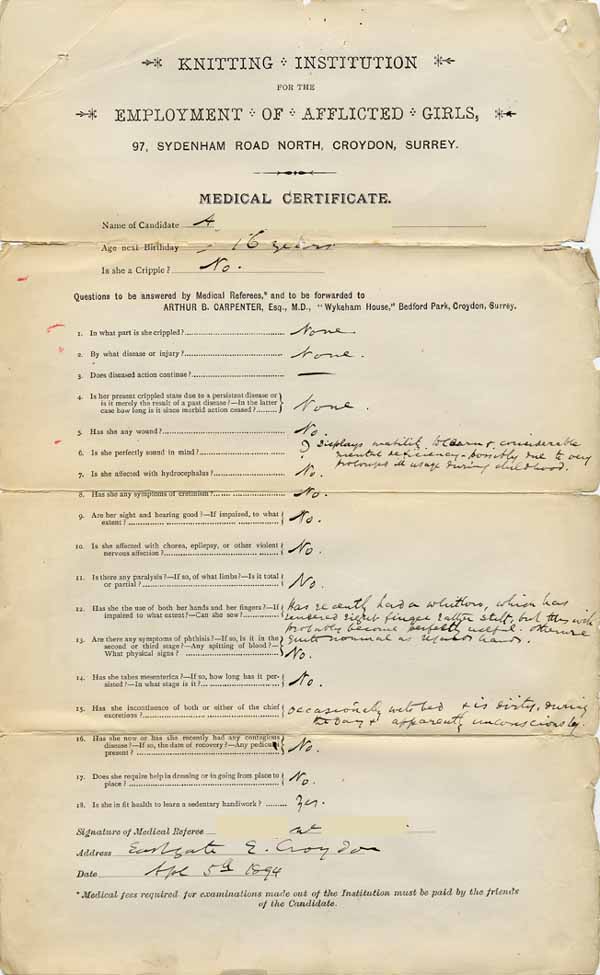 KNITTING INSTITUTION
FOR THE
EMPLOYMENT OF AFFLICTED GIRLS,
97, SYDENHAM ROAD NORTH, CROYDON, SURREY.
MEDICAL CERTIFICATE.
Name of Candidate A
Age next Birthday 16 years
Is she a Cripple? No.
Questions to be answered by Medical Referees,* and to be forwarded to
ARTHUR B. CARPENTER, Esq., M.D., "Wykeham House," Bedford Park, Croydon, Surrey.
1. In what part is she crippled? None
2. By what disease or injury? None.
3. Does diseased action continue? —
4. Is her present crippled state due to a persistent disease or
is it merely the result of a past disease?—In the latter
case how long is it since morbid action ceased? None.
5. Has she any wound? No.
6. Is she perfectly sound in mind? ? Displays inability to learn & considerable
mental deficiency - possibly due to very
prolonged ill usage during childhood.
7. Is she affected with hydrocephalus? No.
8. Has she any symptoms of cretinism? No.
9. Are her sight and hearing good?—If impaired, to what
extent? No.
10. Is she affected with chorea, epilepsy, or other violent
nervous affection? No.
11. Is there any paralysis?—If so, of what limbs?—Is it total
or partial? No.
12. Has she the use of both her hands and her fingers?—If
impaired to what extent?—Can she sew? Has recently had a whitlow, which has
rendered right finger rather stiff, but this will
probably become perfectly useful. otherwise
quite normal as regards hands.
13. Are there any symptoms of phthisis?—If so, Is it in the
second or third stage?—Any spitting of blood?—
What physical signs? No.
14. Has she tabes mesenterica?—If so, how long has it per-
sisted?—In what stage is it? No.
15. Has she incontinence of both or either of the chief
excretions? occasionally wets bed & is dirty, during
the day & apparently unconsciously.
16. Has she now or has she recently had any contagious
disease?—If so, the date of recovery?—Any pediculi
present? No.
17. Does she require help in dressing or in going from place to
place? No.
18. Is she in fit health to learn a sedentary handiwork? Yes.
Signature of Medical Referee
Address Eastgate E. Croydon
Date Apl 5th 1894
*Medical fees required for examinations made out of the Institution must be paid by the friends
of the Candidate.